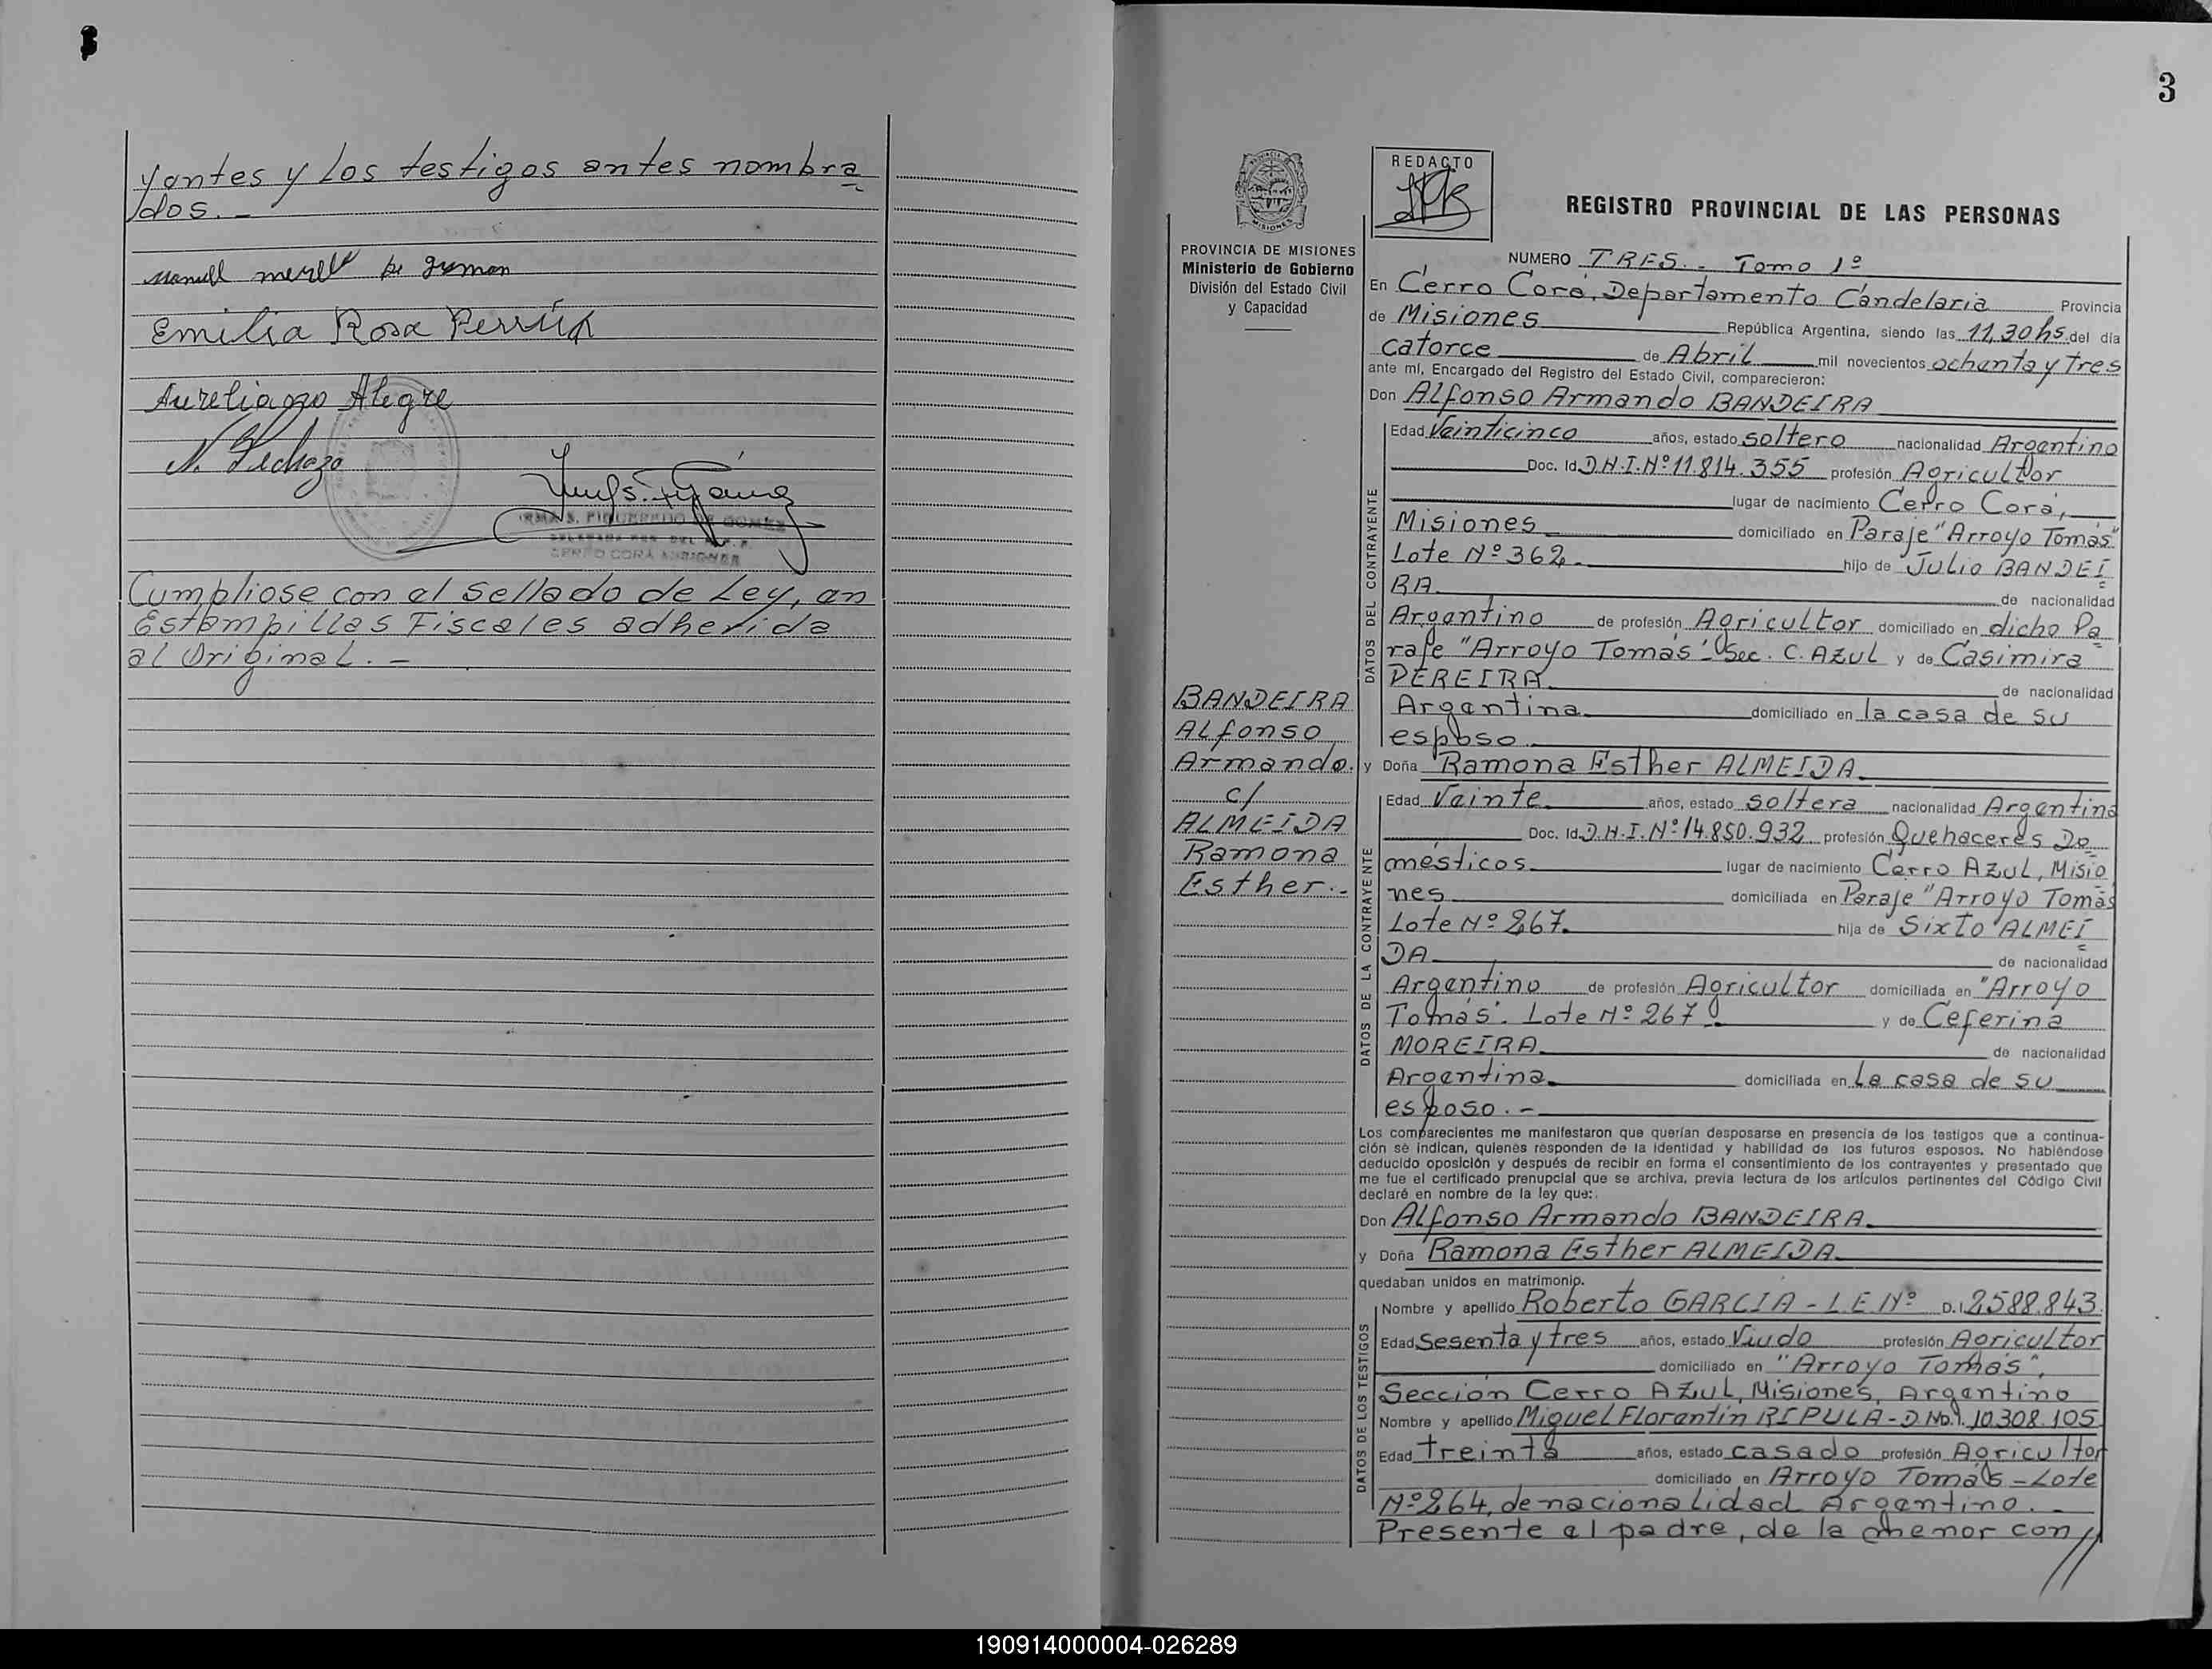 yantes y los testigos antes nombra
dos. -
Emilia Rosa
Aureliano Alegre
CERRO CORÁ MISIONES
Cumpliose con el Sellado de Ley, en
Estampillas Fiscales adherida
al Original. -
3
REDACTO
PROVINCIA DE MISIONES
Ministerio de Gobierno
División del Estado Civil
y Capacidad
REGISTRO PROVINCIAL DE LAS PERSONAS
NUMERO TRES. - Tomo 1º
En Cerro Corá, Departamento Candelaria Provincia
de Misiones República Argentina, siendo las 11,30 hs. del día
catorce de Abril mil novecientos ochenta y tres
ante mí, Encargado del Registro del Estado Civil, comparecieron:
Don Alfonso Armando BANDEIRA
DATOS DEL CONTRAYENTE
Edad Veinticinco años, estado soltero nacionalidad Argentino
Doc. Id. D.N.I. Nº 11.814.355 profesión Agricultor
lugar de nacimiento Cerro Corá,
Misiones domiciliado en Paraje "Arroyo Tomás"
Lote Nº 362. hijo de Julio BANDEI
RA. de nacionalidad
Argentino de profesión Agricultor domiciliado en dicho Pa
raje "Arroyo Tomás" Sec. C. Azul y de Casimira
PEREIRA de nacionalidad
Argentina domiciliado en la casa de su
esposo
BANDEIRA
Alfonso
Armando.
c/
ALMEIDA
Ramona
Esther.-
y Doña Ramona Esther ALMEIDA
DATOS DE LA CONTRAYENTE
Edad Veinte años, estado soltera nacionalidad Argentina
Doc. Id. D.N.I. Nº 14.850.932 profesión Quehaceres Do
mésticos lugar de nacimiento Cerro Azul, Misio
nes domiciliada en Paraje "Arroyo Tomás
Lote Nº 267. hija de Sixto ALMEI
DA de nacionalidad
Argentino de profesión Agricultor domiciliada en "Arroyo
Tomás". Lote Nº 267 y de Ceferina
MOREIRA de nacionalidad
Argentina domiciliada en la casa de su
esposo. -
Los comparecientes me manifestaron que querían desposarse en presencia de los testigos que a continua-
ción se indican, quienes responden de la identidad y habilidad de los futuros esposos. No habiéndose
deducido oposición y después de recibir en forma el consentimiento de los contrayentes y presentado que
me fue el certificado prenupcial que se archiva, previa lectura de los artículos pertinentes del Código Civil
declaré en nombre de la ley que:
Don Alfonso Armando BANDEIRA
y Doña Ramona Esther ALMEIDA
quedaban unidos en matrimonio.
DATOS DE LOS TESTIGOS
Nombre y apellido Roberto GARCIA - L.E Nº D.I. 2.588.843.
Edad Sesenta y tres años, estado Viudo profesión Agricultor
domiciliado en "Arroyo Tomás",
Sección Cerro Azul, Misiones, Argentino
Nombre y apellido Miguel Florentin RIPULA - D.N.I. 10.308.105
Edad treinta años, estado casado profesión Agricultor
domiciliado en Arroyo Tomás - Lote
Nº 264, de nacionalidad Argentino. -
Presente el padre, de la menor con //
190914000004-026289